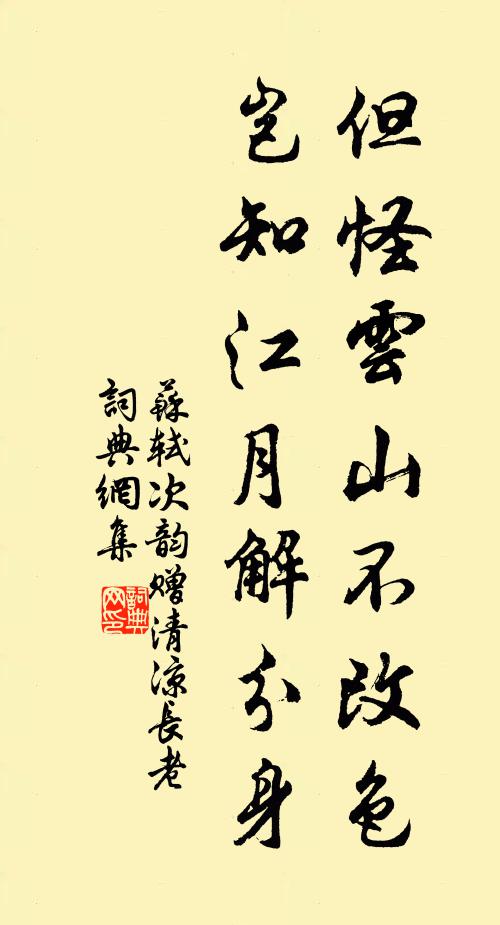 但怪雲山不改色
豈知江月解分身
蘇軾次韵贈清涼長老
詞典網集
詞典网印